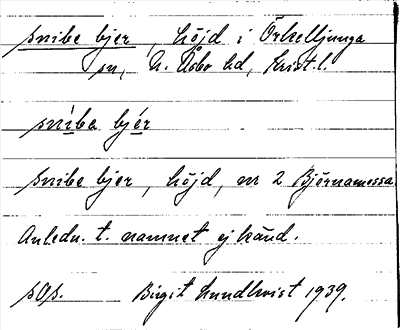 snibe bjer, höjd i Örkelljunga
sn, N. Åsbo hd, Krist. l.
sníbe bjér
Snibe bjer, höjd, nr 2 Björnamossa
Anledn. t. namnet ej känd.
sOs. Birgit Lundkvist 1939.